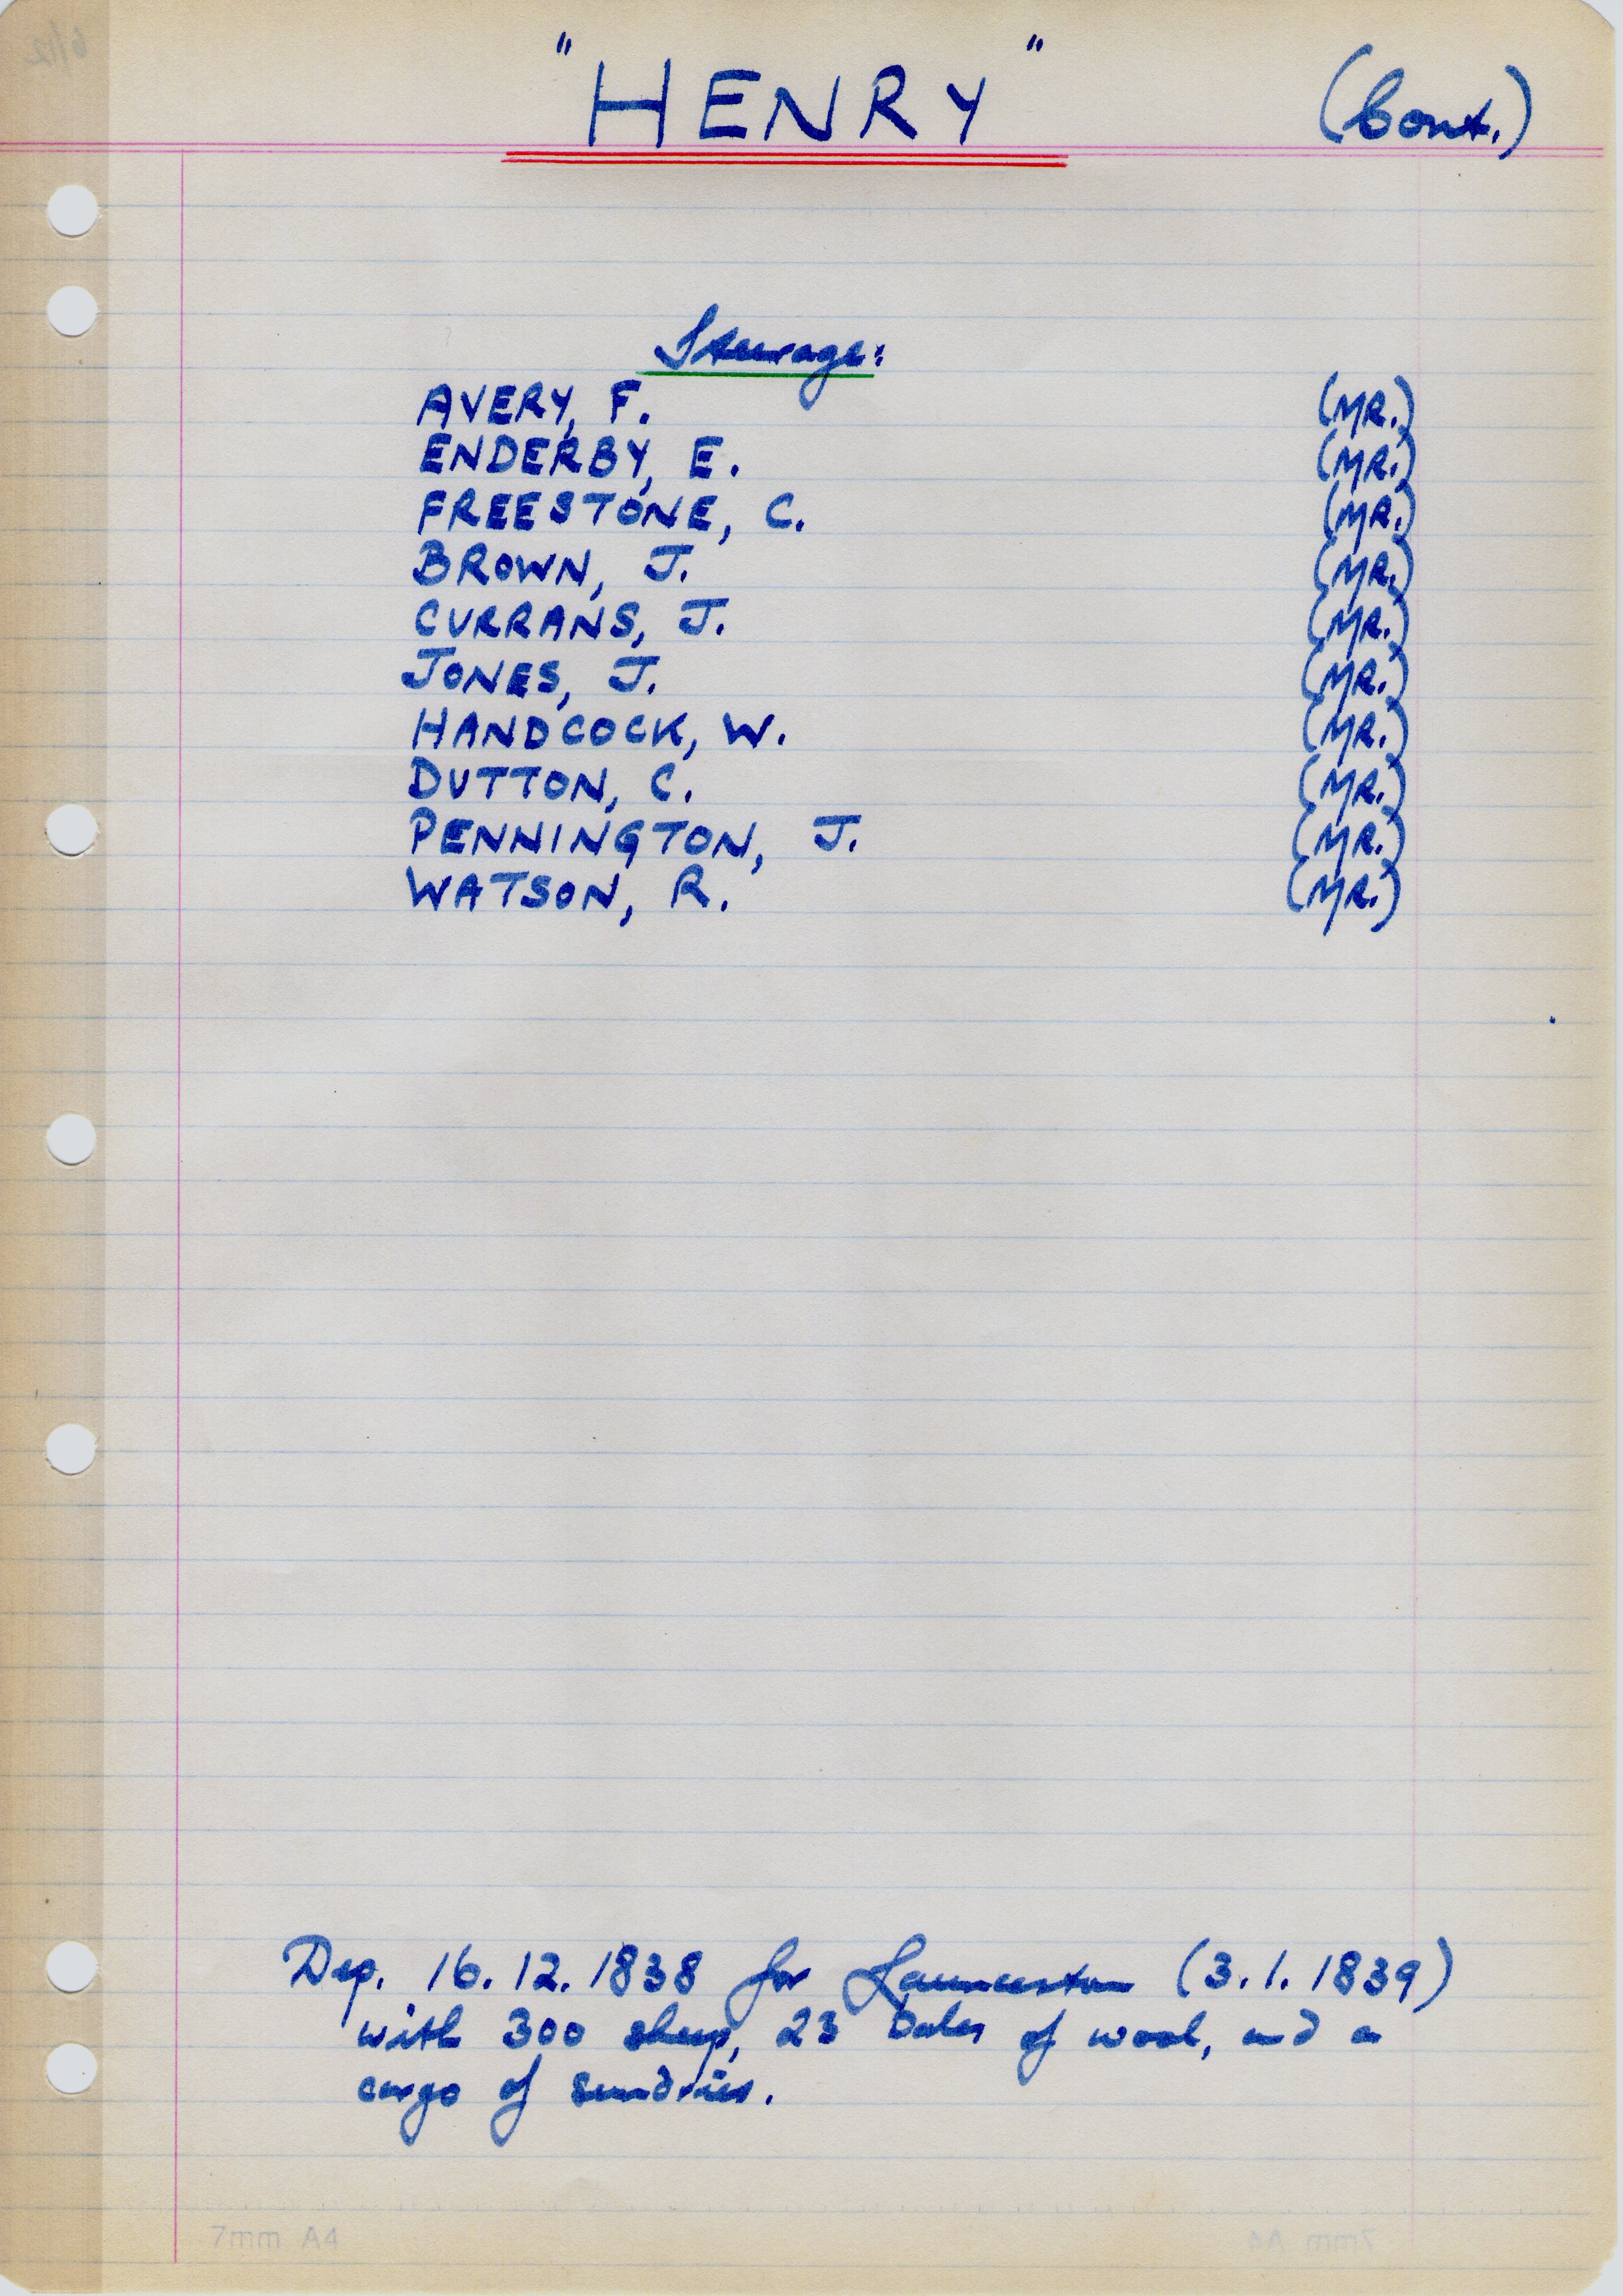 "HENRY" (Cont.)
Steerage:
AVERY, F. (MR.)
ENDERBY, E. (MR.)
FREESTONE, C. (MR.)
BROWN, J. (MR.)
CURRANS, J. (MR.)
JONES, J. (MR.)
HANDCOCK, W. (MR.)
DUTTON, C. (MR.)
PENNINGTON, J. (MR.)
WATSON, R. (MR.)
Dep. 16.12.1838 for Launceston (3.1.1839)
with 300 sheep, 23 bales of wool, and a
cargo of sundries.
7mm A4